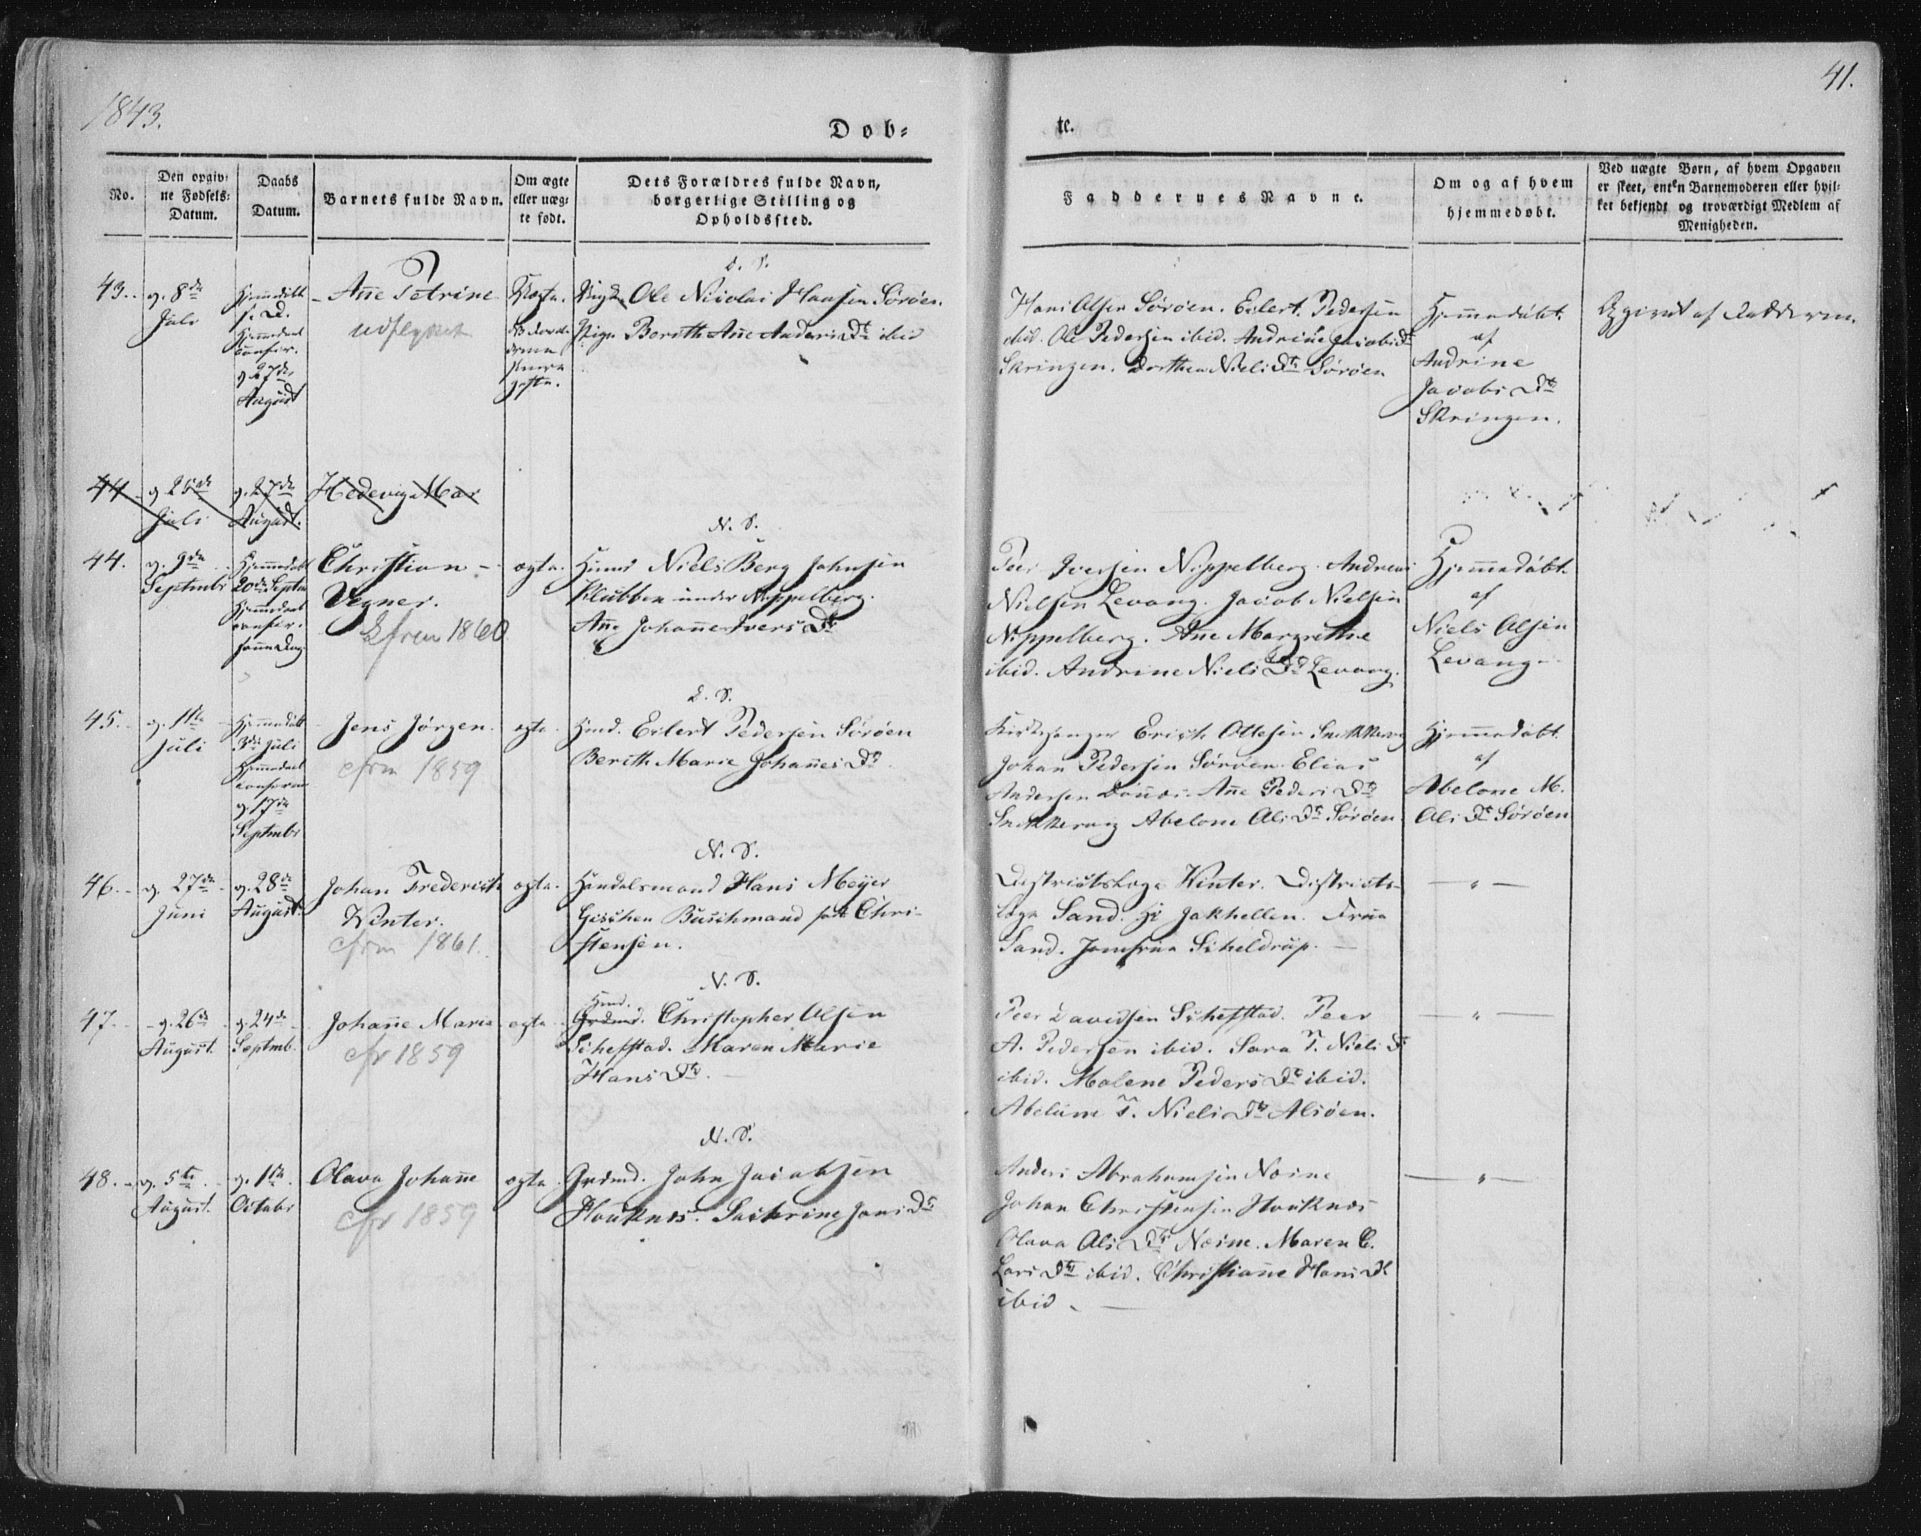 1843.
41.
Døb-
te.
No.
Den opgiv-
ne Fødsels-
Datum.
Daabs
Datum.
Barnets fulde Navn.
Om ægte
eller uæg-
te født.
Dets Forældres fulde Navn,
borgerlige Stilling og
Opholdssted.
Faddernes Navne.
Om og af hvem
hjemmedøbt.
Ved uægte Børn, af hvem Opgaven
er skeet, enten Barnemoderen eller hvil-
ket bekjendt og troværdigt Medlem af
Menigheden.
43.
8de
Juli
Hjemmedøbt
s. D.
Hjemmed
confir.
27de
August
Ane Petrine
udflyttet
Uægte.
D. S.
Ole Nicolai Hansen Sørøen
Pige Berith Ane Anders Dtr ibid
Hans Olsen Sørøen. Eilert Pedersen
ibid. Ole Pedersen ibid. Andrine Jacobs Dtr
Skringen. Dorthea Niels Dtr Sørøen
Hjemmedøbt
af
Andrine
Jacobs Dtr
Skringen.
Opgivet af Fadderne.
44
25de
Juli
27de
August.
Hedevig Mar
44.
9de
Septmbr
Hjemmedøbt
20de Septm
Hjemmed
confir.
samme Dag
Christian
Vegner.
Cfrm 1860
ægte.
N. S.
Huusmd Niels Berg Johnsen
Klubben under Nippelberg.
Ane Johanne Ivers Dtr
Peer Iversen Nippelberg. Andreas
Nielsen Levang. Jacob Nielsen
Nippelberg. Ane Margrethe
ibid. Andrine Niels Dtr Levang.
Hjemmedøbt
af
Niels Olsen
Levang
45.
11te
Juli
Hjemmedøbt
Juli
Hjemmed
confirm
17de
Septmbr
Jens Jørgen.
cfrm 1859
ægte.
D. S.
Hmd. Eilert Pedersen Sørøen
Berith Marie Johannes Dtr
Kirkesanger Erich Ottesen Snekkevig
Johan Pedersen Sørøen. Elias
Andersen Dønnes. Ane Peders Dtr
Snekkevig Abelone Ols Dtr Sørøen
Hjemmedøbt
af
Abelone M.
Ols Dtr Sørøen
46.
27de
Juni
28de
August.
Johan Frederich
Winter.
cfrm 1861.
ægte.
N. S.
Handelsmand Hans Meyer
Gischen Buschmand født Chri-
stensen.
Districtslæge Winter. Districts-
læge Sand. Hr Jakhellen. Frue
Sand. Jomfrue Scheldrup.
47.
26de
August.
24de
Septmb.
Johane Marie
cfr 1859
ægte
N. S.
Hmd.
Grdmd. Christopher Olsen
Schefstad. Maren Marie
Hans Dtr.
Peer Davidsen Schefstad. Peer
A. Pedersen ibid. Sara T. Niels Dr
ibid. Malene Peders Dtr ibid.
Abelune T. Niels Dtr Alsøen.
48.
5te
August.
1ste
October
Olava Johane
cfr 1859
ægte.
N. S.
Grdmd. John Jacobsen
Hauknes. Cathrine Jens Dtr
Anders Abrahamsen Næsne
Johan Christensen Hauknes
Olava Ols Dtr Næsne. Maren C.
Lars Dtr ibid. Christiane Hans Dtr
ibid